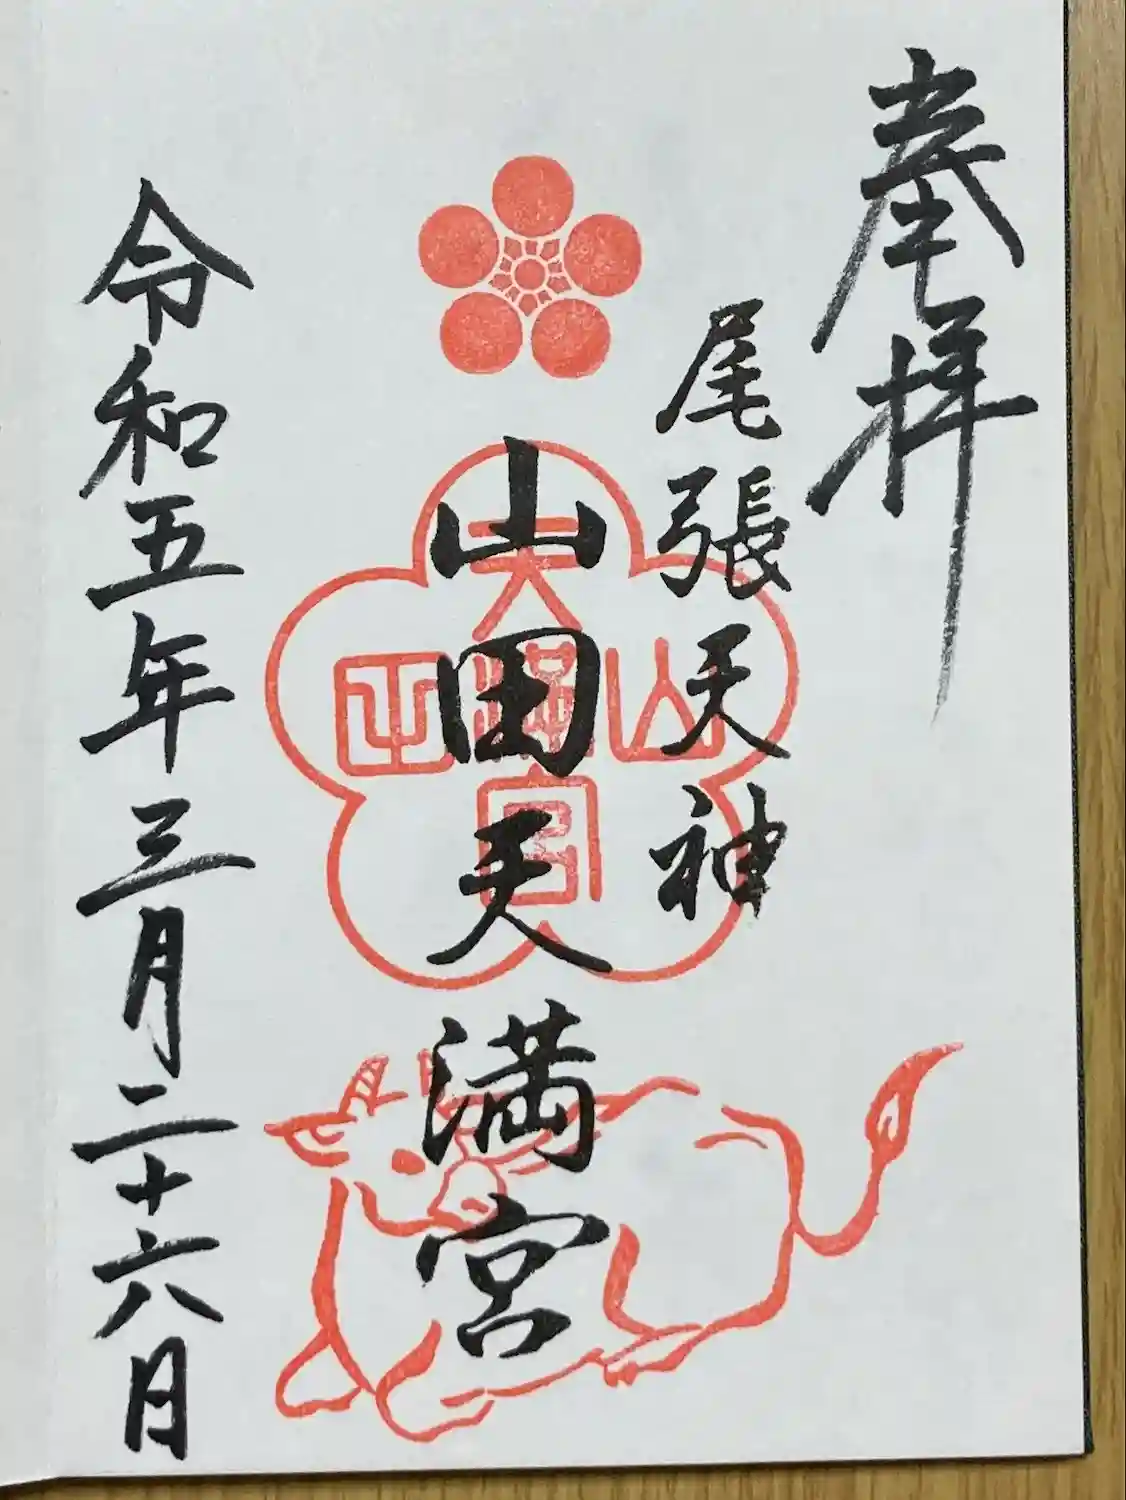 奉拝
尾張天神
山田天満宮
令和五年三月二十六日